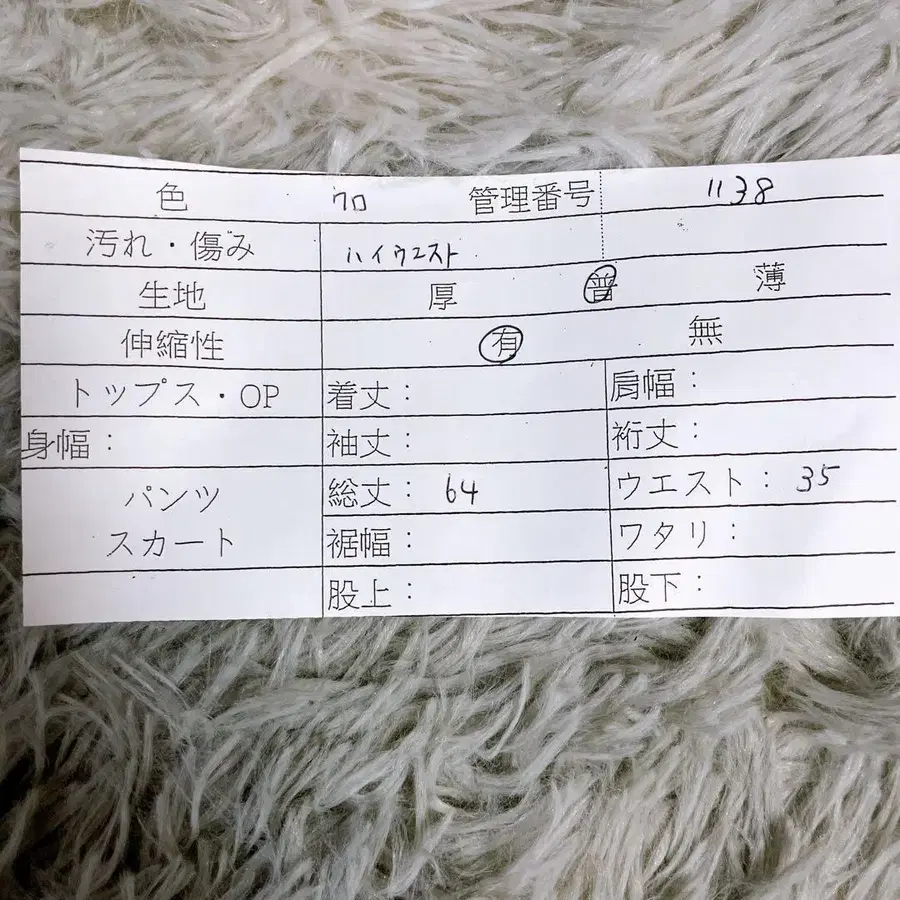 色 クロ 管理番号 1138
汚れ・傷み ハイウエスト
生地 厚 普 薄
伸縮性 有 無
トップス・OP 着丈： 肩幅：
身幅： 袖丈： 裄丈：
パンツ 総丈： 64 ウエスト： 35
スカート 裾幅： ワタリ：
股上： 股下：